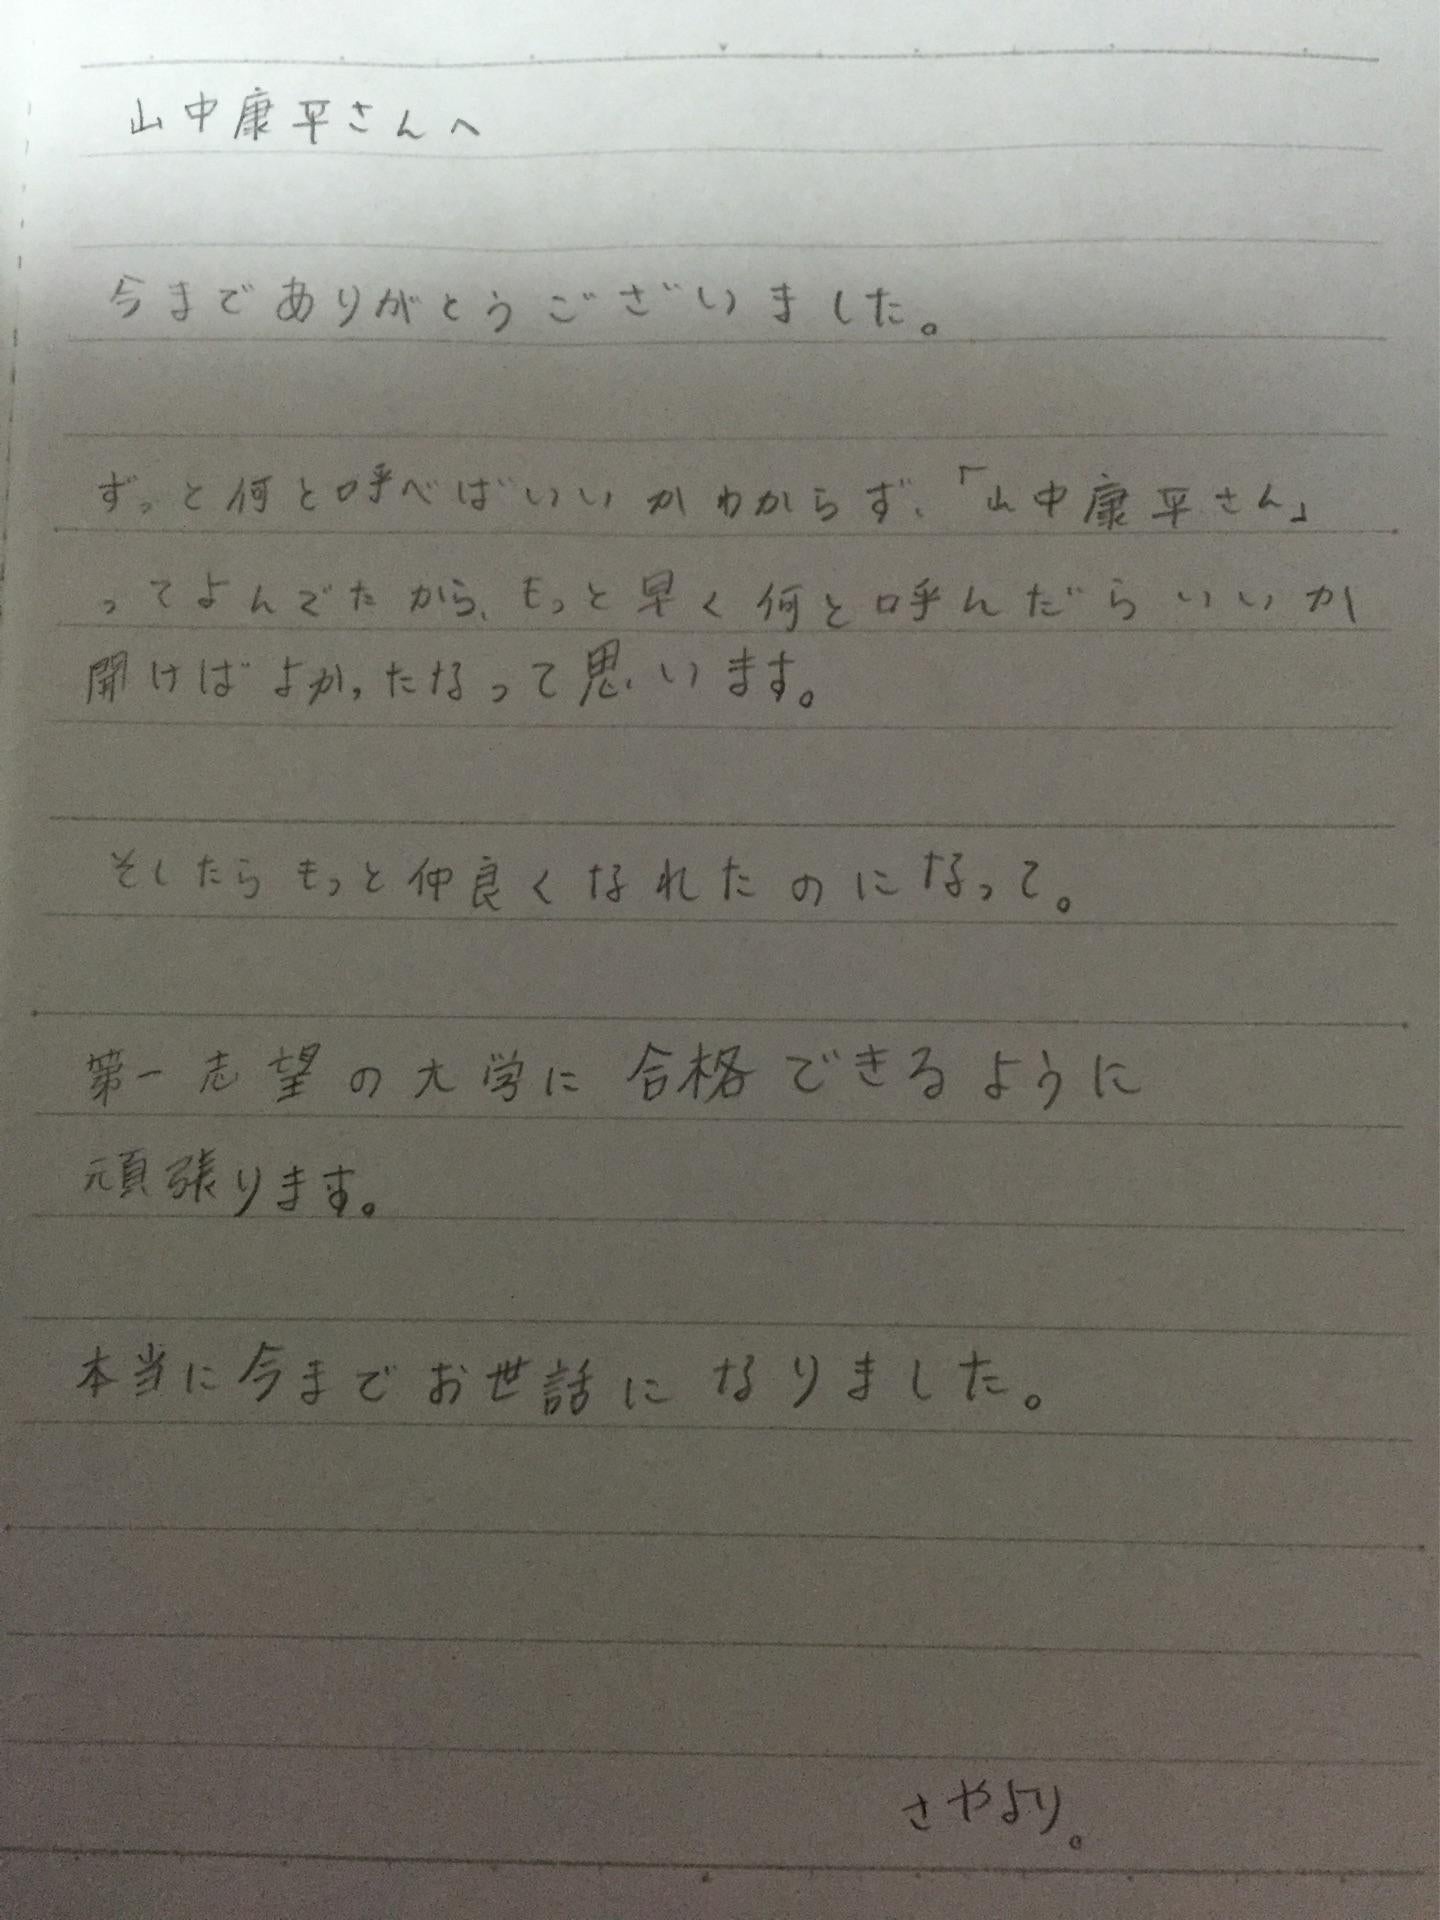 山中康平さんへ
今までありがとうございました。
ずっと何と呼べばいいかわからず、「山中康平さん」
ってよんでたから、もっと早く何と呼んだらいいか
聞けばよかったなって思います。
そしたらもっと仲良くなれたのになって。
第一志望の大学に合格できるように
頑張ります。
本当に今までお世話になりました。
さやより。